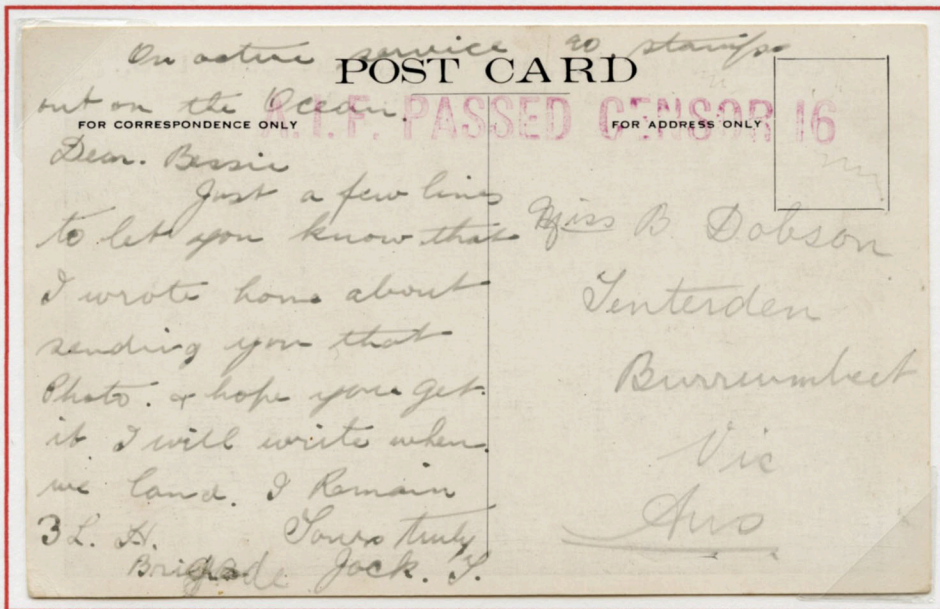 On active service no stamps
POST CARD
out on the Ocean.
A.I.F. PASSED CENSOR 16
FOR CORRESPONDENCE ONLY
FOR ADDRESS ONLY
Dear. Bessie
Just a few lines
to let you know that
I wrote home about
sending you that
Photo. & hope you get.
it I will write when
we land. I Remain
Yours truly
3 L. H.
Brigade Jack. S.
Miss B Dobson
Tenterden
Burrumbeet
Vic
Aus